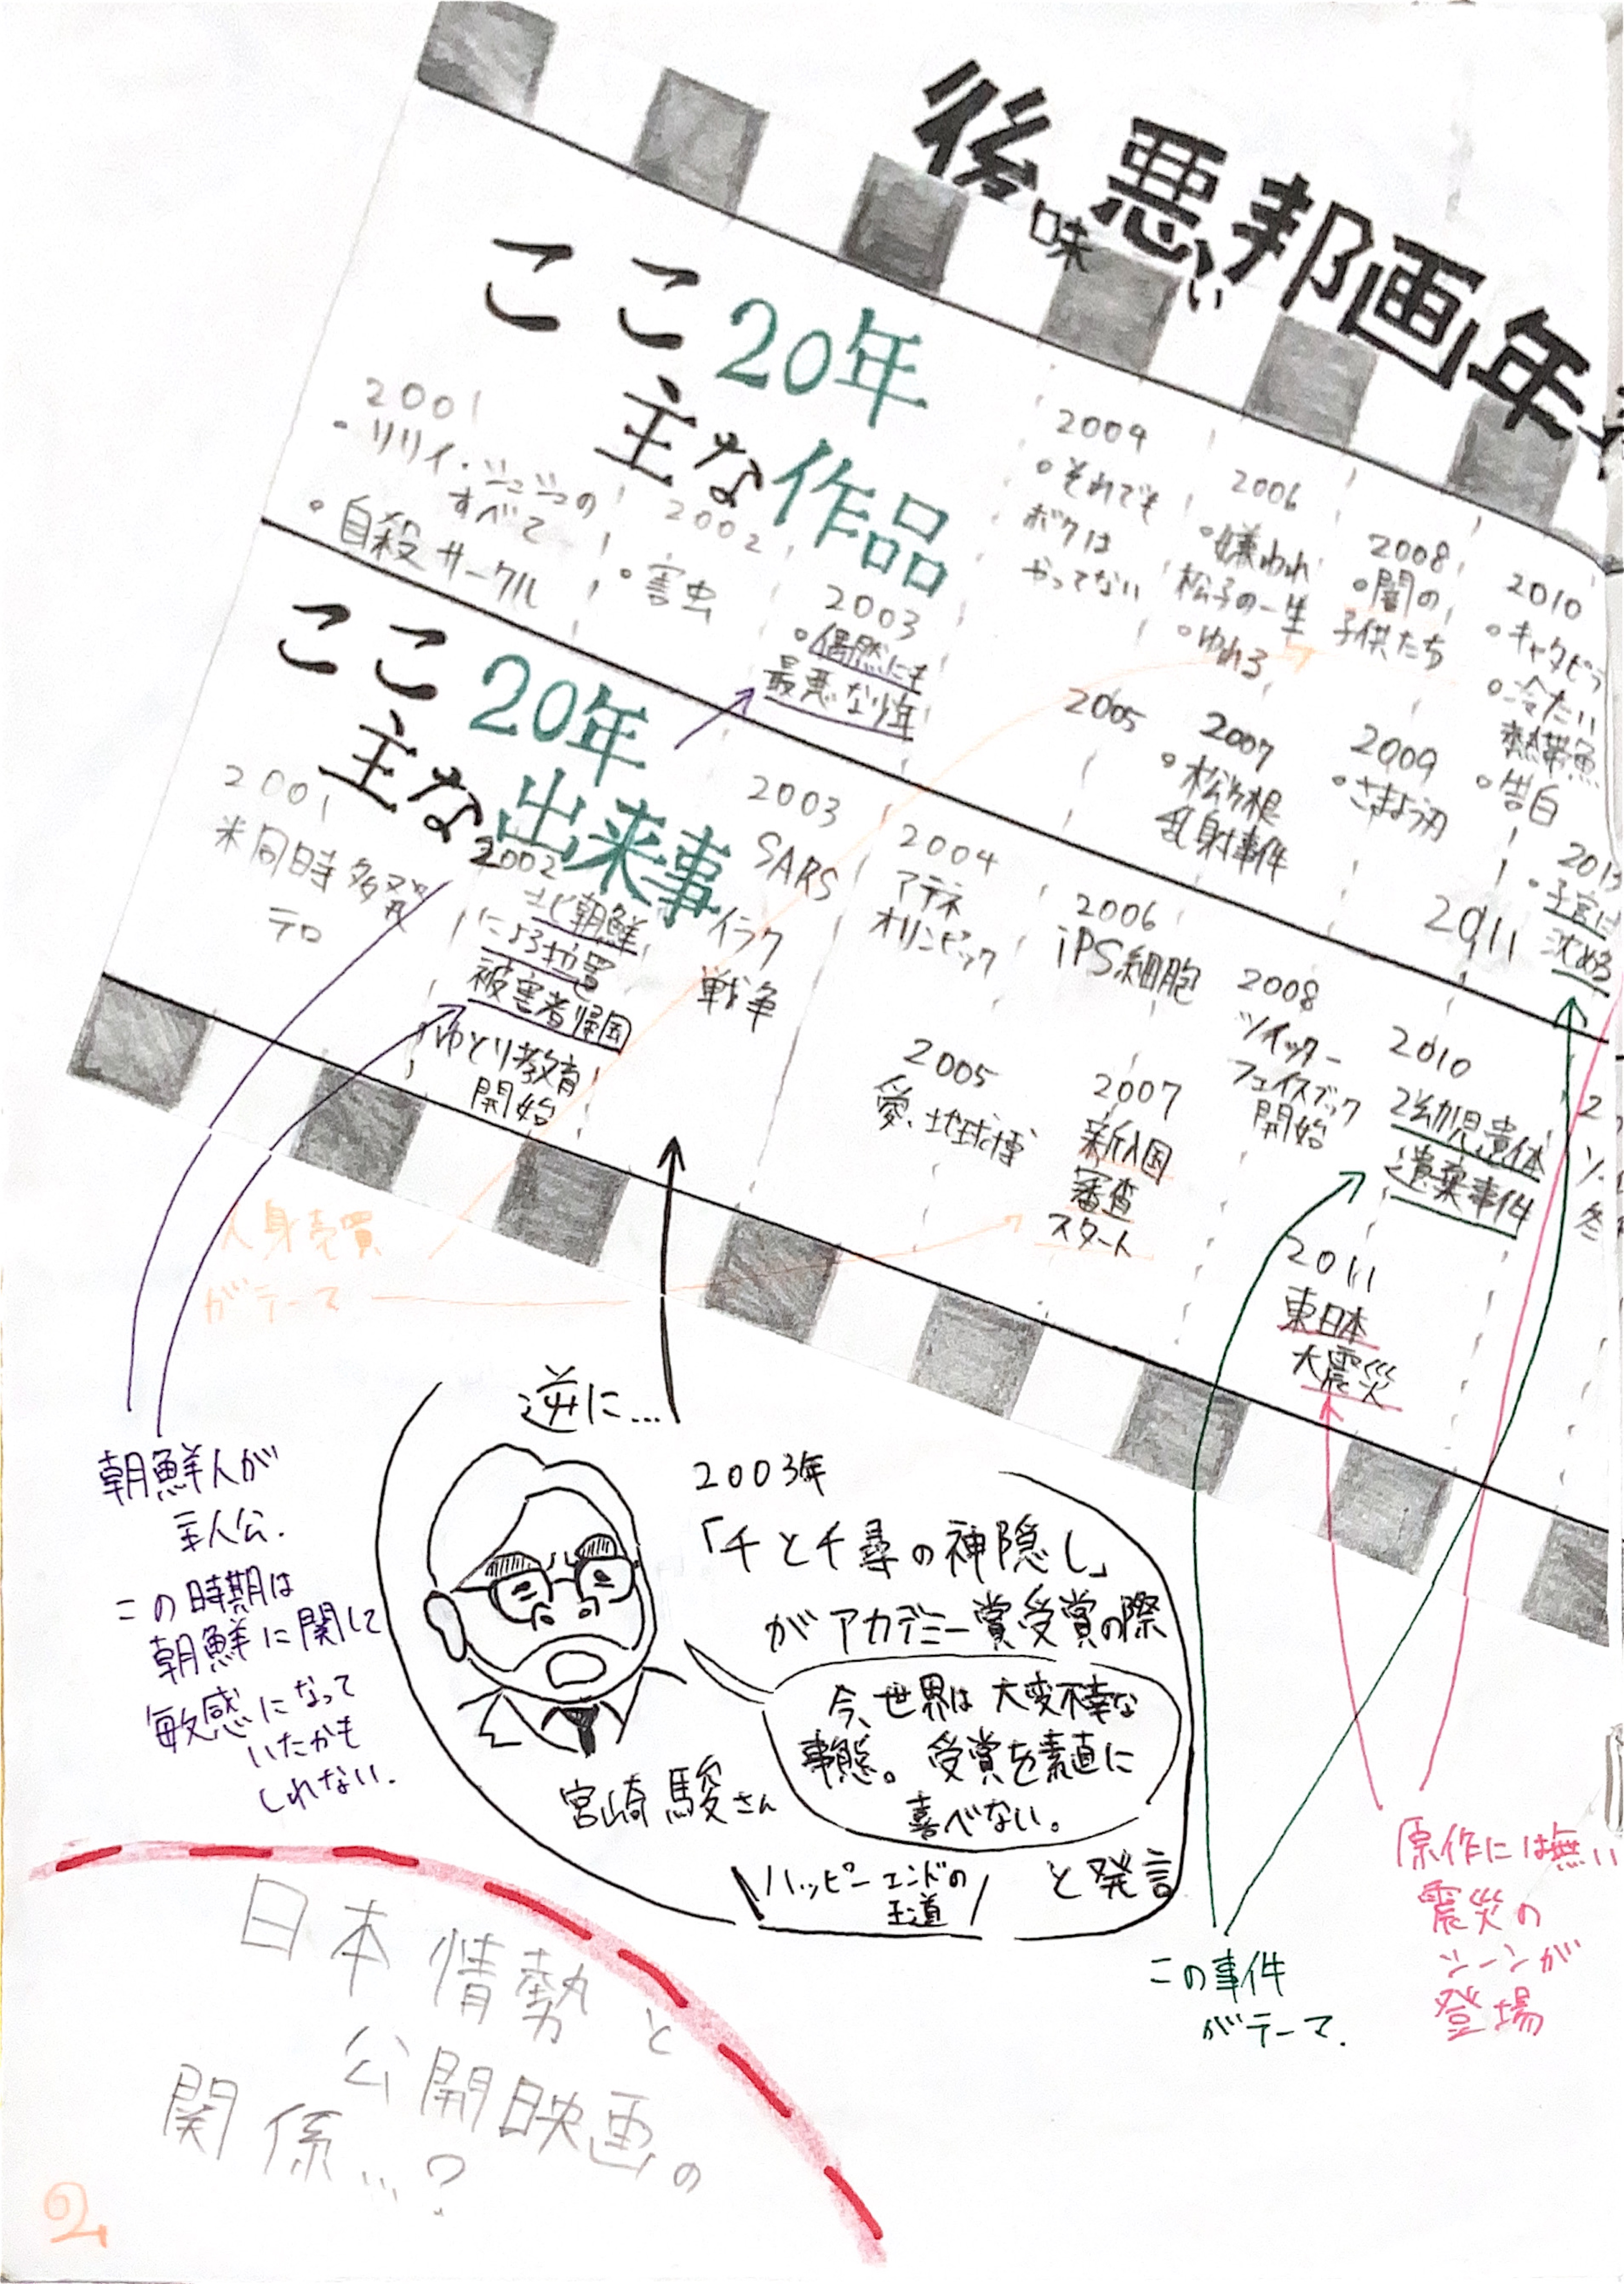 後味悪い邦画年
ここ20年
主な作品
2001
・リリイ・シュシュの
すべて
・自殺サークル
2002
・害虫
2003
・偶然にも
最悪な少年
2004
・それでも
ボクは
やってない
2005
2006
・嫌われ
松子の一生
・ゆれる
2007
・松ヶ根
乱射事件
2008
・闇の
子供たち
2009
・さまよう刃
2010
・キャタピラ
・冷たい
熱帯魚
・告白
2011
201
・子宮に
沈める
ここ20年
主な出来事
2001
米同時多発
テロ
2002
北朝鮮
による拉致
被害者帰国
ゆとり教育
開始
2003
SARS
イラク
戦争
2004
アテネ
オリンピック
2005
愛、地球博
2006
iPS細胞
2007
新入国
審査
スタート
2008
ツイッター
フェイスブック
開始
2010
2幼児遺体
遺棄事件
2011
東日本
大震災
2
ソ
冬
人身売買
がテーマ
朝鮮人が
主人公.
この時期は
朝鮮に関して
敏感になって
いたかも
しれない.
逆に…
2003年
「千と千尋の神隠し」
がアカデミー賞受賞の際
今、世界は大変不幸な
事態。受賞を素直に
喜べない。
宮崎 駿さん
ハッピーエンドの
王道
と発言
この事件
がテーマ.
原作には無い
震災の
シーンが
登場
日本情勢と
公開映画の
関係…?
2